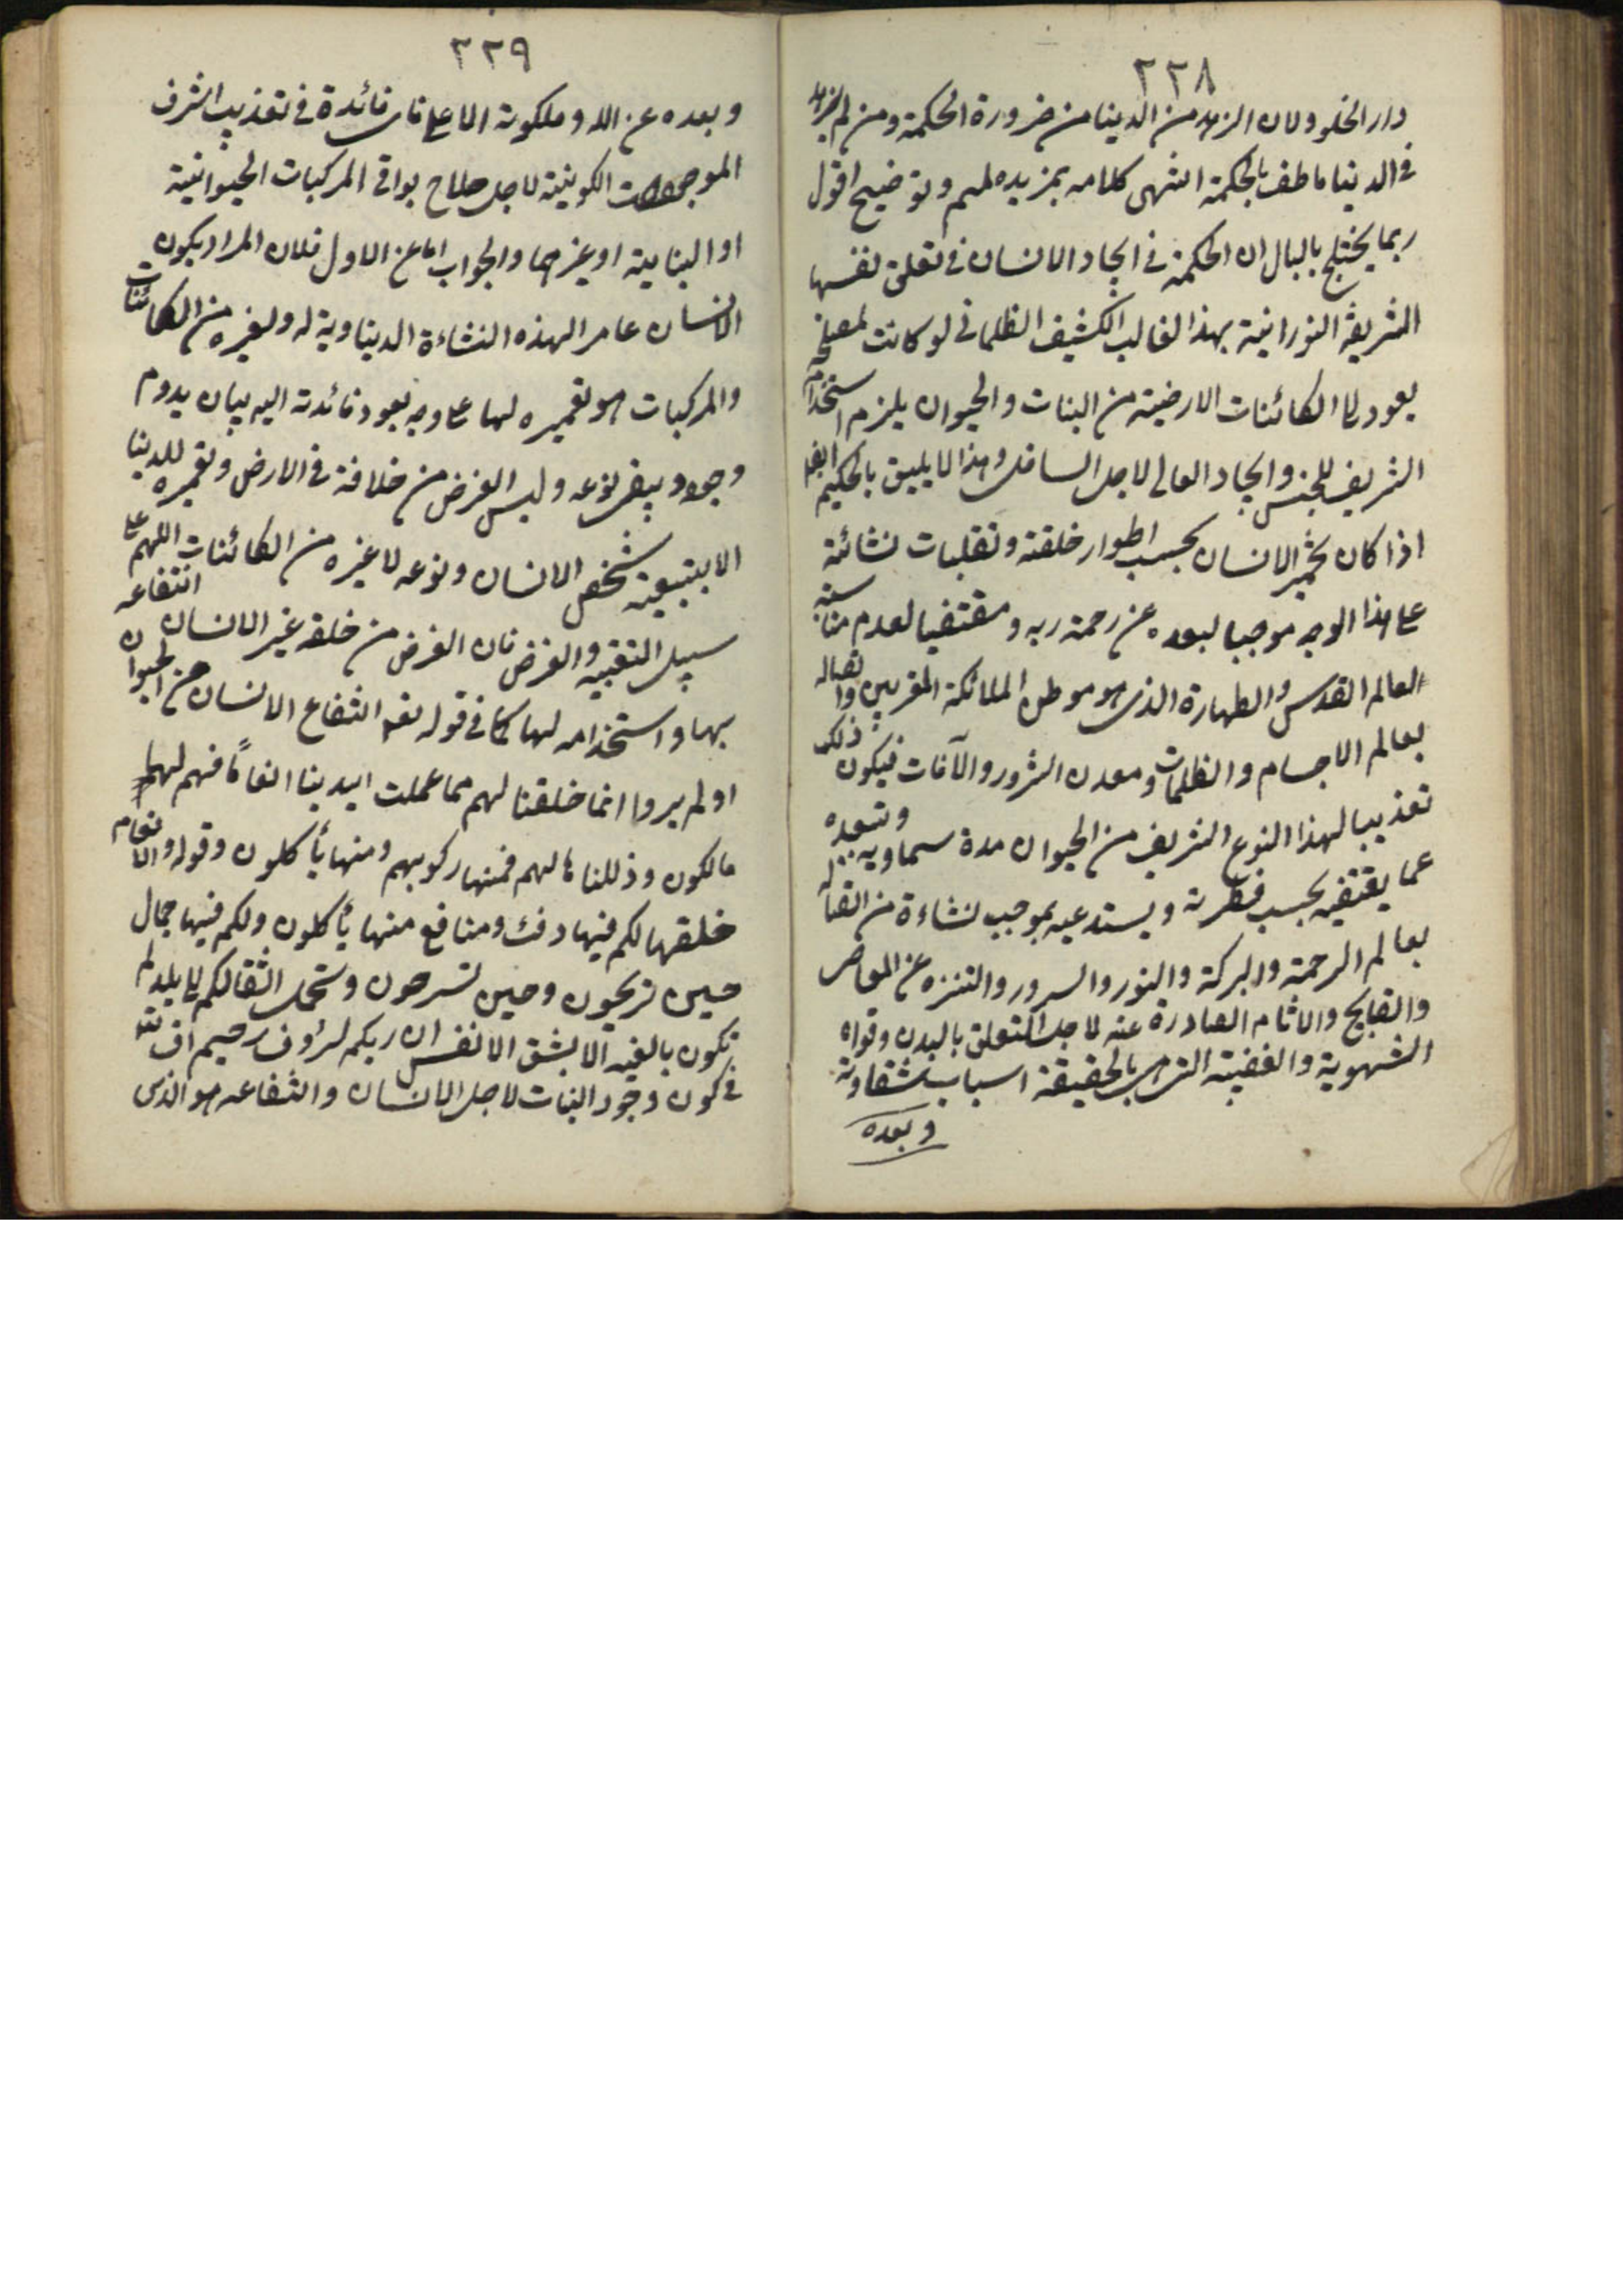 ٢٢٨
دار الخلود لان الزهد من الدينا من ضرورة الحكمة ومن لم يزهد
فى الدنيا ما ظفر بالحكمة انتهى كلامه بمزيد ملهم وتوضيح اقول
ربما يختلج بالبال ان الحكمة فى ايجاد الانسان فى تعلق نفسها
الشريفة النورانية بهذا القالب الكثيف الظلمانى لو كانت لمصلحة
يعود الى الكائنات الارضية من النبات والحيوان يلزم استخدام
الشريف للخسيس وايجاد العالى لاجل السافل وهذا لا يليق بالحكيم ايضا
اذا كان تخمير الانسان بحسب اطوار خلقته وتقلبات نشائة
على هذا الوجه موجبا لبعده عن رحمة ربه ومقتضيا لعدم مناسبته
العالم القدس والطهارة الذى هو موطن الملائكة المقربين واتصاله
بعالم الاجسام والظلمات ومعدن الشرور والآفات فيكون ذلك
تعذيبا لهذا النوع الشريف من الحيوان مدة سماوية وتبعده
عما يقتضيه بحسب فطرته ويستدعيه بموجب نشاءة من اتصاله
بعالم الرحمة والبركة والنور والسرور والتنزه عن المعاصى
والقبايح والاثام الصادرة عنه لاجل التعلق بالبدن وقواه
الشهوية والغضبية التى هى بالحقيقة اسباب شقاوته
وبعده
٢٢٩
وبعده عن الله وملكوته الاعلى فاى فائدة فى تعذيب اشرف
الموجودات الكونية لاجل صلاح بواقى المركبات الحيوانية
او النباتية او غيرهما والجواب اما عن الاول فلان المراد بكون
الانسان عامرا لهذه النشاءة الديناوية له ولغيره من الكائنات
والمركبات هو تعميره لها على وجه يعود فائدته اليه بيان يدوم
وجوده ويبقى نوعه وليس الغرض من خلافة فى الارض وتعميره للدينا
الا بتبعية شخص الانسان ونوعه لا غيره من الكائنات اللهم على
سبيل التقبيه والغرض فان الغرض من خلقه غير الانسان انتفاعه
بها واستخدامه لها كما فى قوله تعم انتفاع الانسان من الحيوان
اولم يروا انما خلقنا لهم مما عملت ايدينا انعاماً فهم لها
مالكون وذللناها لهم فمنها ركوبهم ومنها يأكلون وقوله والانعام
خلقها لكم فيها دفئ ومنافع منها يأكلون ولكم فيها جمال
حين تريحون وحين تسرحون وتحمل اثقالكم الى بلد لم
تكون بالغيه الا بشق الانفس ان ربكم لرؤف رحيم
فى كون وجود النبات لاجل الانسان والشفاعه هو الذى